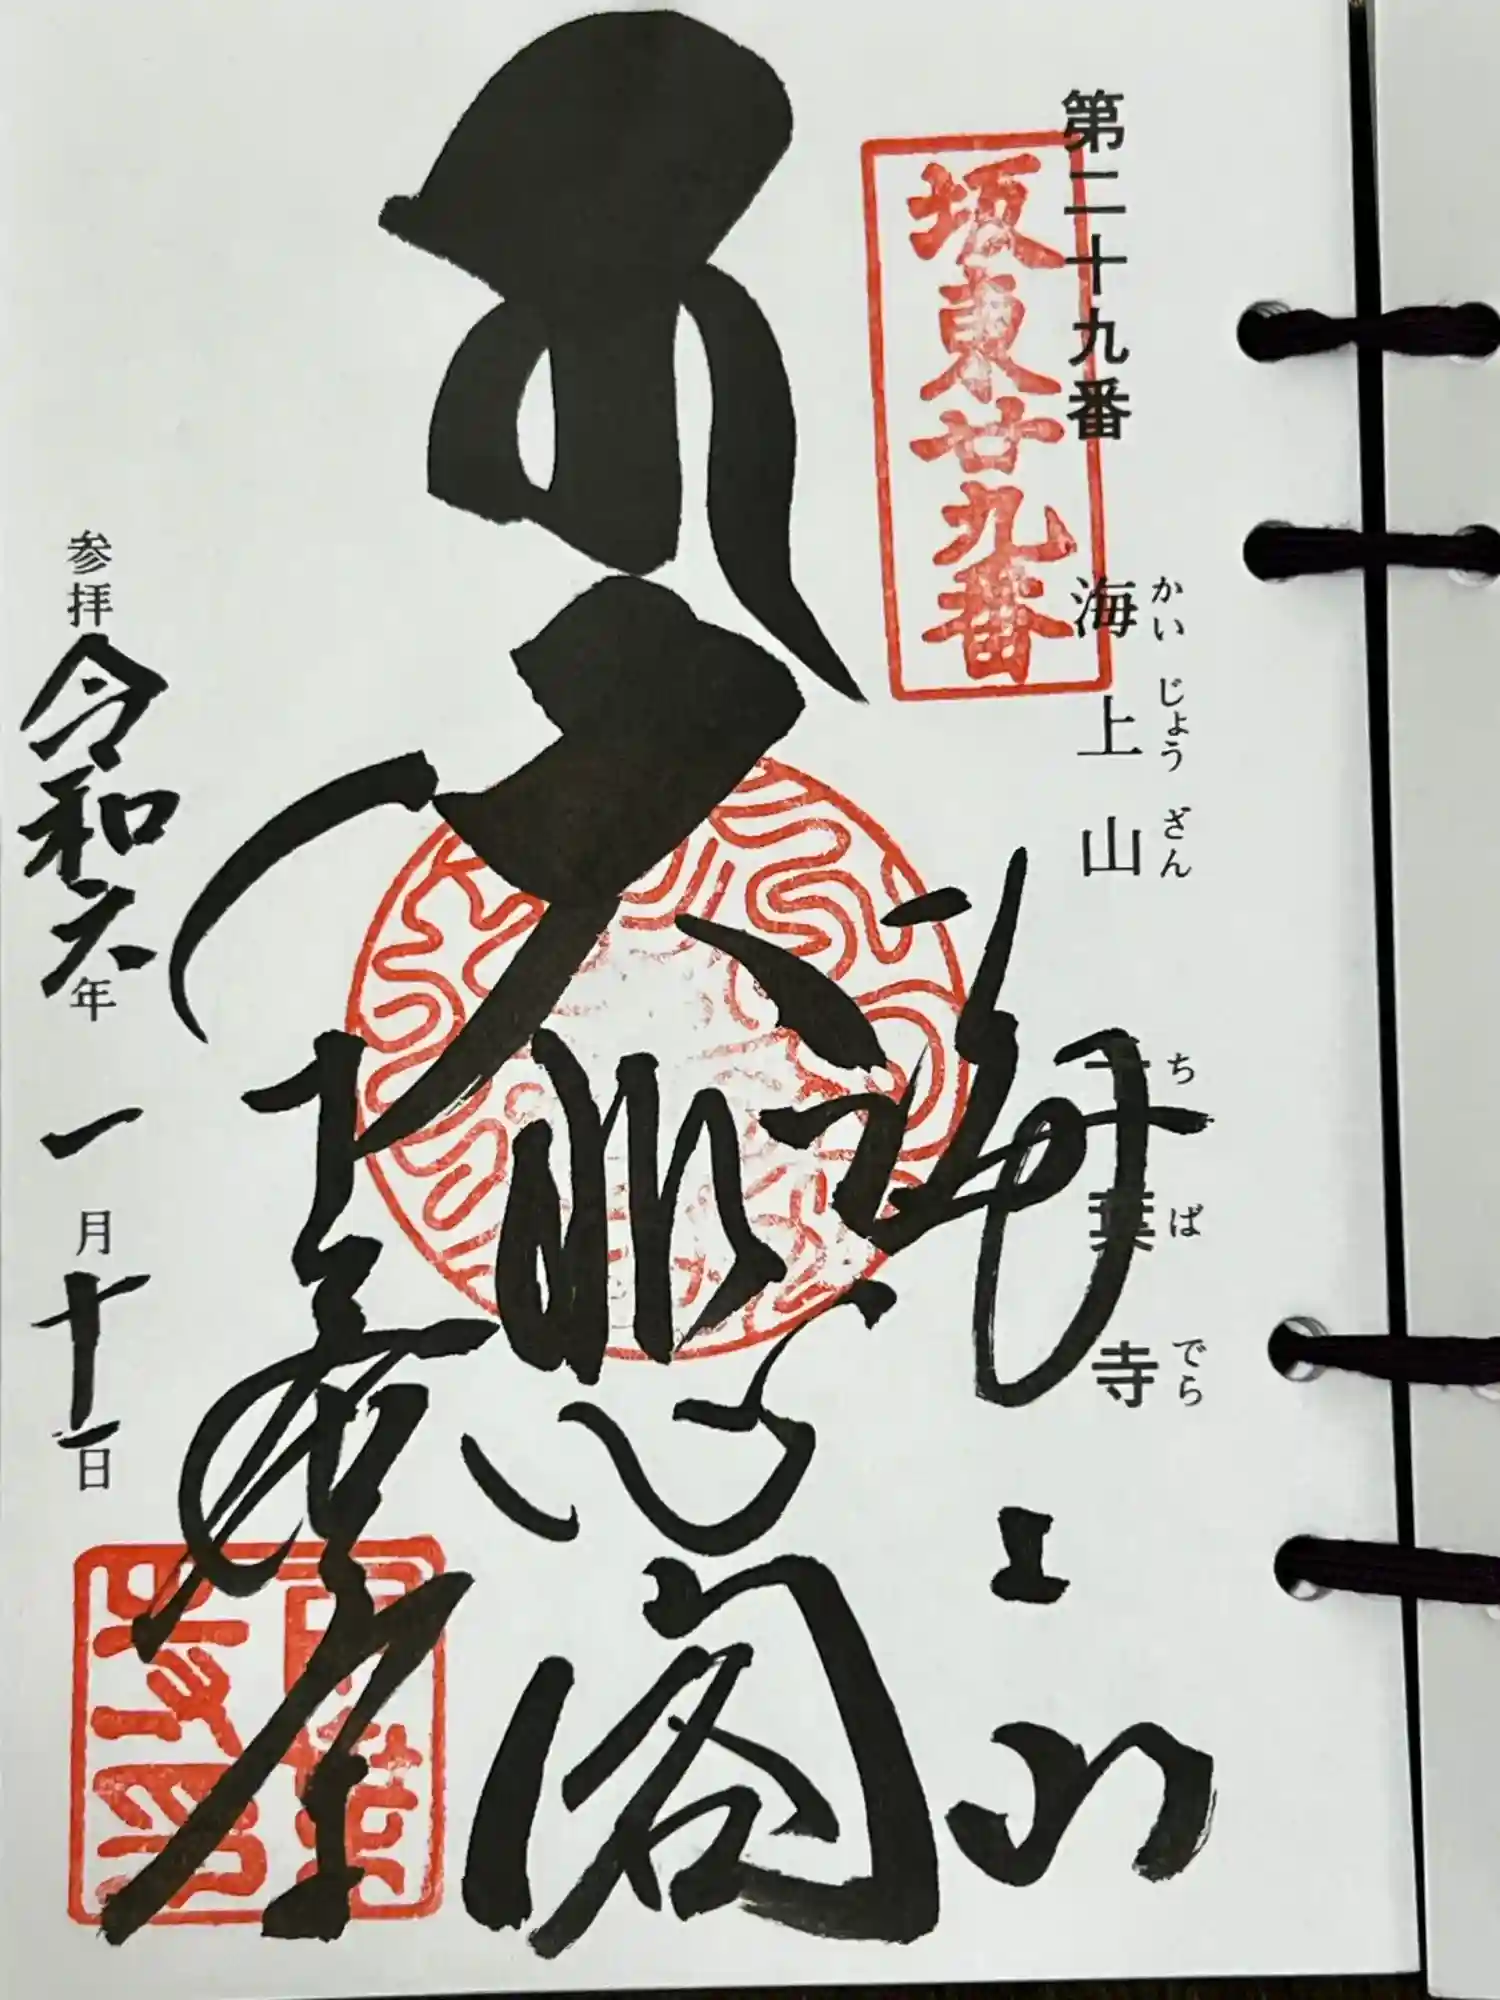 第二十九番
かいじょうざん
海上山
ちばでら
千葉寺
坂東廿九番
海上山
大悲閣
千葉寺
参拝 令和六年 一月十一日